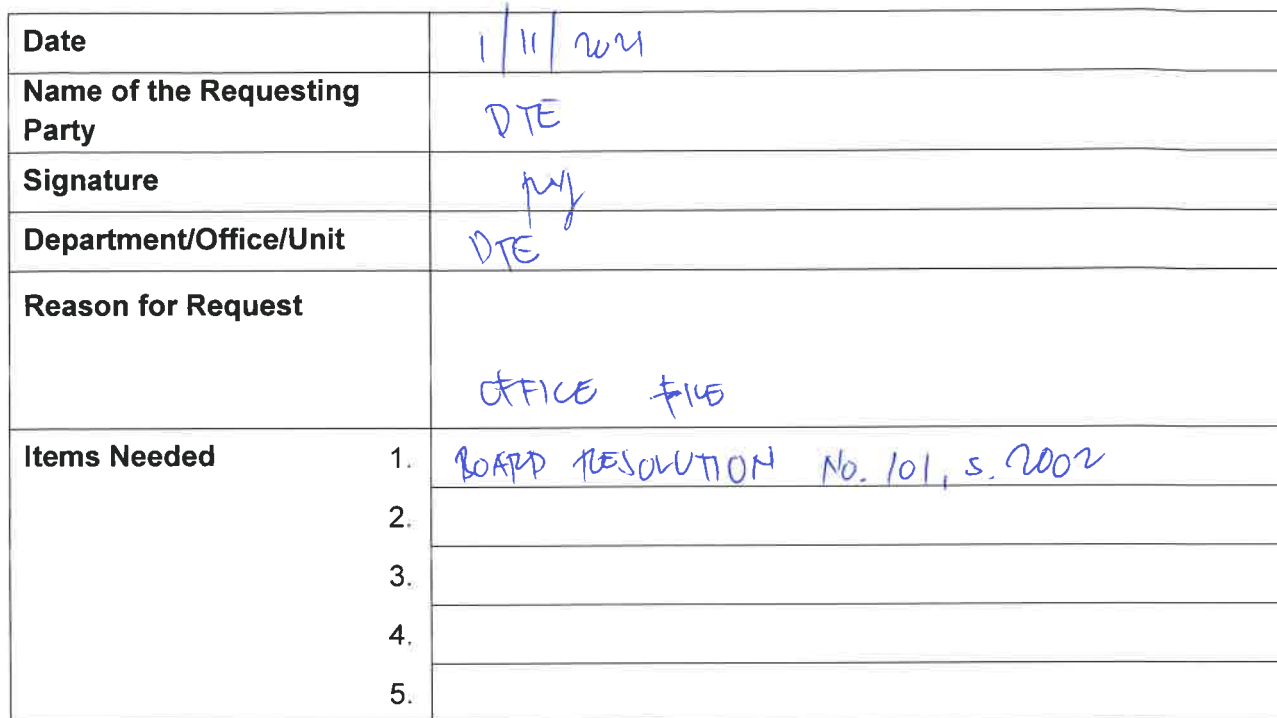 Date 1/11/2021
Name of the Requesting
Party DTE
Signature
Department/Office/Unit DTE
Reason for Request
OFFICE FILE
Items Needed 1. BOARD RESOLUTION No. 101, s. 2002
2.
3.
4.
5.